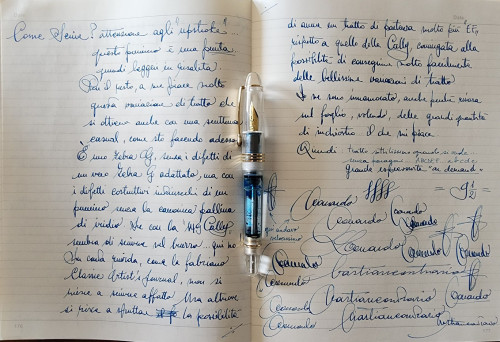 Come Scrive? attenzione agli "upstroke"...
questo pennino è una punta
quindi leggera in risalita.
Per il resto, a me piace molto
questa variazione di tratto che
si ottiene anche con una scrittura
casual, come sto facendo adesso.
È uno Zebra G, senza i difetti di
un vero Zebra G adattato, ma con
i difetti costruttivi intrinseci di un
pennino senza la canonica pallina
di iridio. Se con la Cally
sembra di scrivere sul burro... qui no.
In carta ruvida, come la Fabriano
Classic Artist's Journal, non si
riesce a scrivere affatto. Ma altrove
si riesce a sfruttare la possibilità
di avere un tratto di partenza molto più
rispetto a quello della Cally, coniugata alla
possibilità di conseguire molto facilmente
delle bellissime variazioni di tratto.
se sono innamorato, anche perché riversa
sul foglio, volendo, delle grandi quantità
di inchiostro il che mi piace.
Quindi: tratto sottilissimo quando si vuole
grande espressività "on demand".
= 9 1/2
qui andavo
velocissimo
Leonardo
Leonardo
Leonardo
Leonardo
Leonardo
Leonardo
Leonardo
Leonardo
Leonardo
bastiancontrario
Leonardo
bastiancontrario
Leonardo
Leonardo
bastiancontrario
Leonardo
bastiancontrario